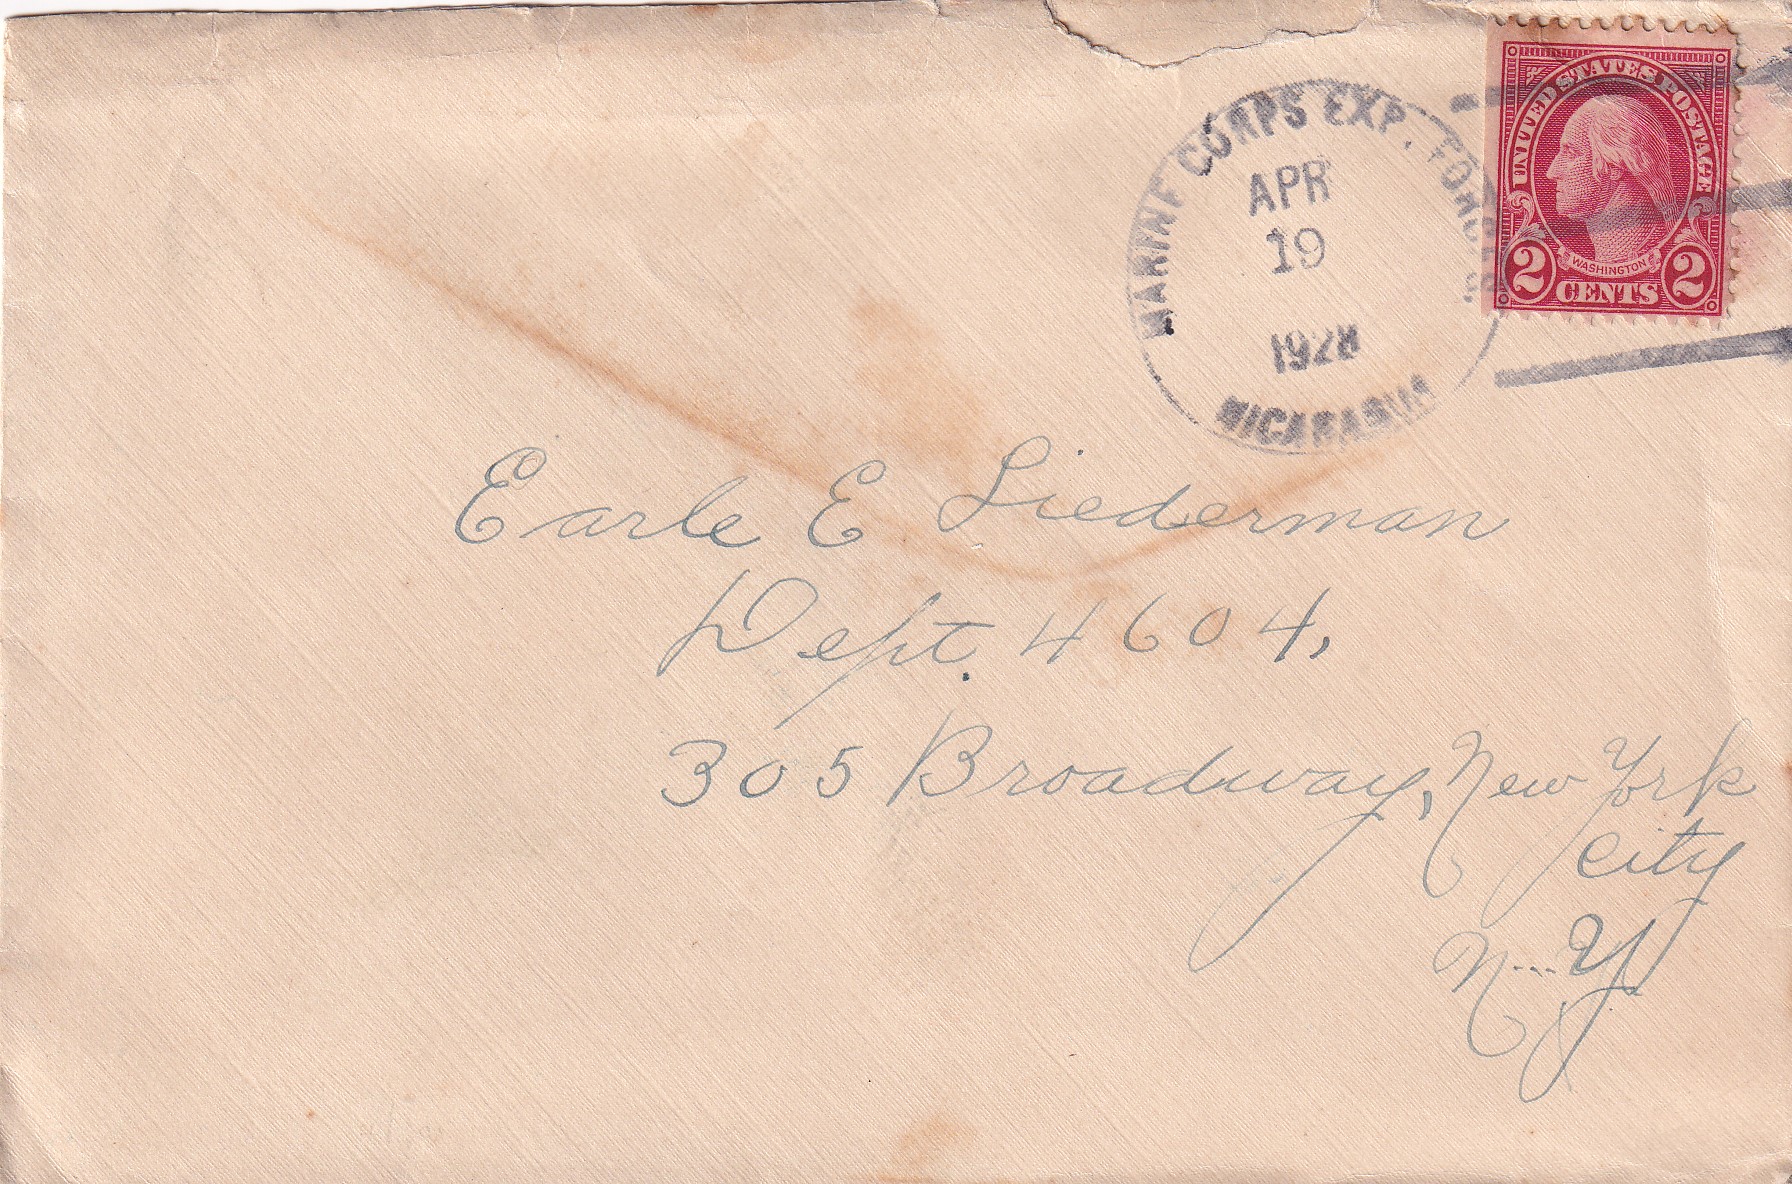 MARINE CORPS EXP. FORCES
APR
19
1928
NICARAGUA
UNITED STATES POSTAGE
WASHINGTON
2 CENTS 2
Earle E Liederman
Dept. 4604,
305 Broadway, New York
City
N...Y